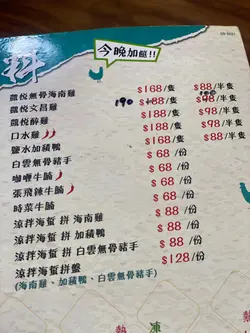 料
今晚加餸!!
龍悅無骨海南雞 $168/隻 $88/半隻
龍悅文昌雞 190 $188/隻 100 $98/半隻
龍悅醉雞 $188/隻 $98/半隻
口水雞 $188/隻 $98/半隻
鹽水加積鴨 $168/隻 $88/半隻
白雲無骨豬手 $68/份
咖喱牛腩 $68/份
張飛辣牛腩 $68/份
時菜牛腩 $68/份
涼拌海蜇 拼 海南雞 $88/份
涼拌海蜇 拼 加積鴨 $88/份
涼拌海蜇 拼 白雲無骨豬手 $88/份
涼拌海蜇拼盤 $128/份
(海南雞、加積鴨、白雲無骨豬手)
熱
凍
熱